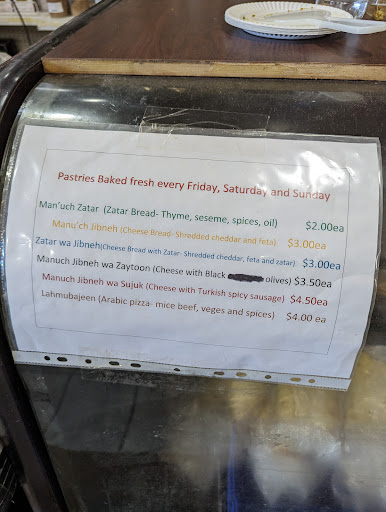 Pastries Baked fresh every Friday, Saturday and Sunday
Man'uch Zatar (Zatar Bread- Thyme, seseme, spices, oil) $2.00ea
Manu'ch Jibneh (Cheese Bread- Shredded cheddar and feta) $3.00ea
Zatar wa Jibneh(Cheese Bread with Zatar- Shredded cheddar, feta and zatar) $3.00ea
Manuch Jibneh wa Zaytoon (Cheese with Black olives) $3.50ea
Manuch Jibneh wa Sujuk (Cheese with Turkish spicy sausage) $4.50ea
Lahmubajeen (Arabic pizza- mice beef, veges and spices) $4.00 ea